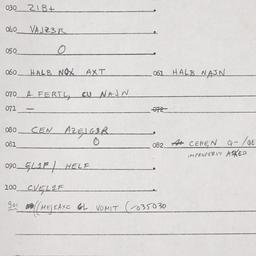 030 ZIB+
040 VAJZ3R
050 O
060 HALB NOX AXT 061 HALB NAJN
070 A FERTL, CU NAJN
071 — 072
080 CEN AZEJG3R
081 O 082 CEHEN
IMPROPERLY ASKED
090 GL2F / HELF
100 CVGL2F
VOMIT (~035030